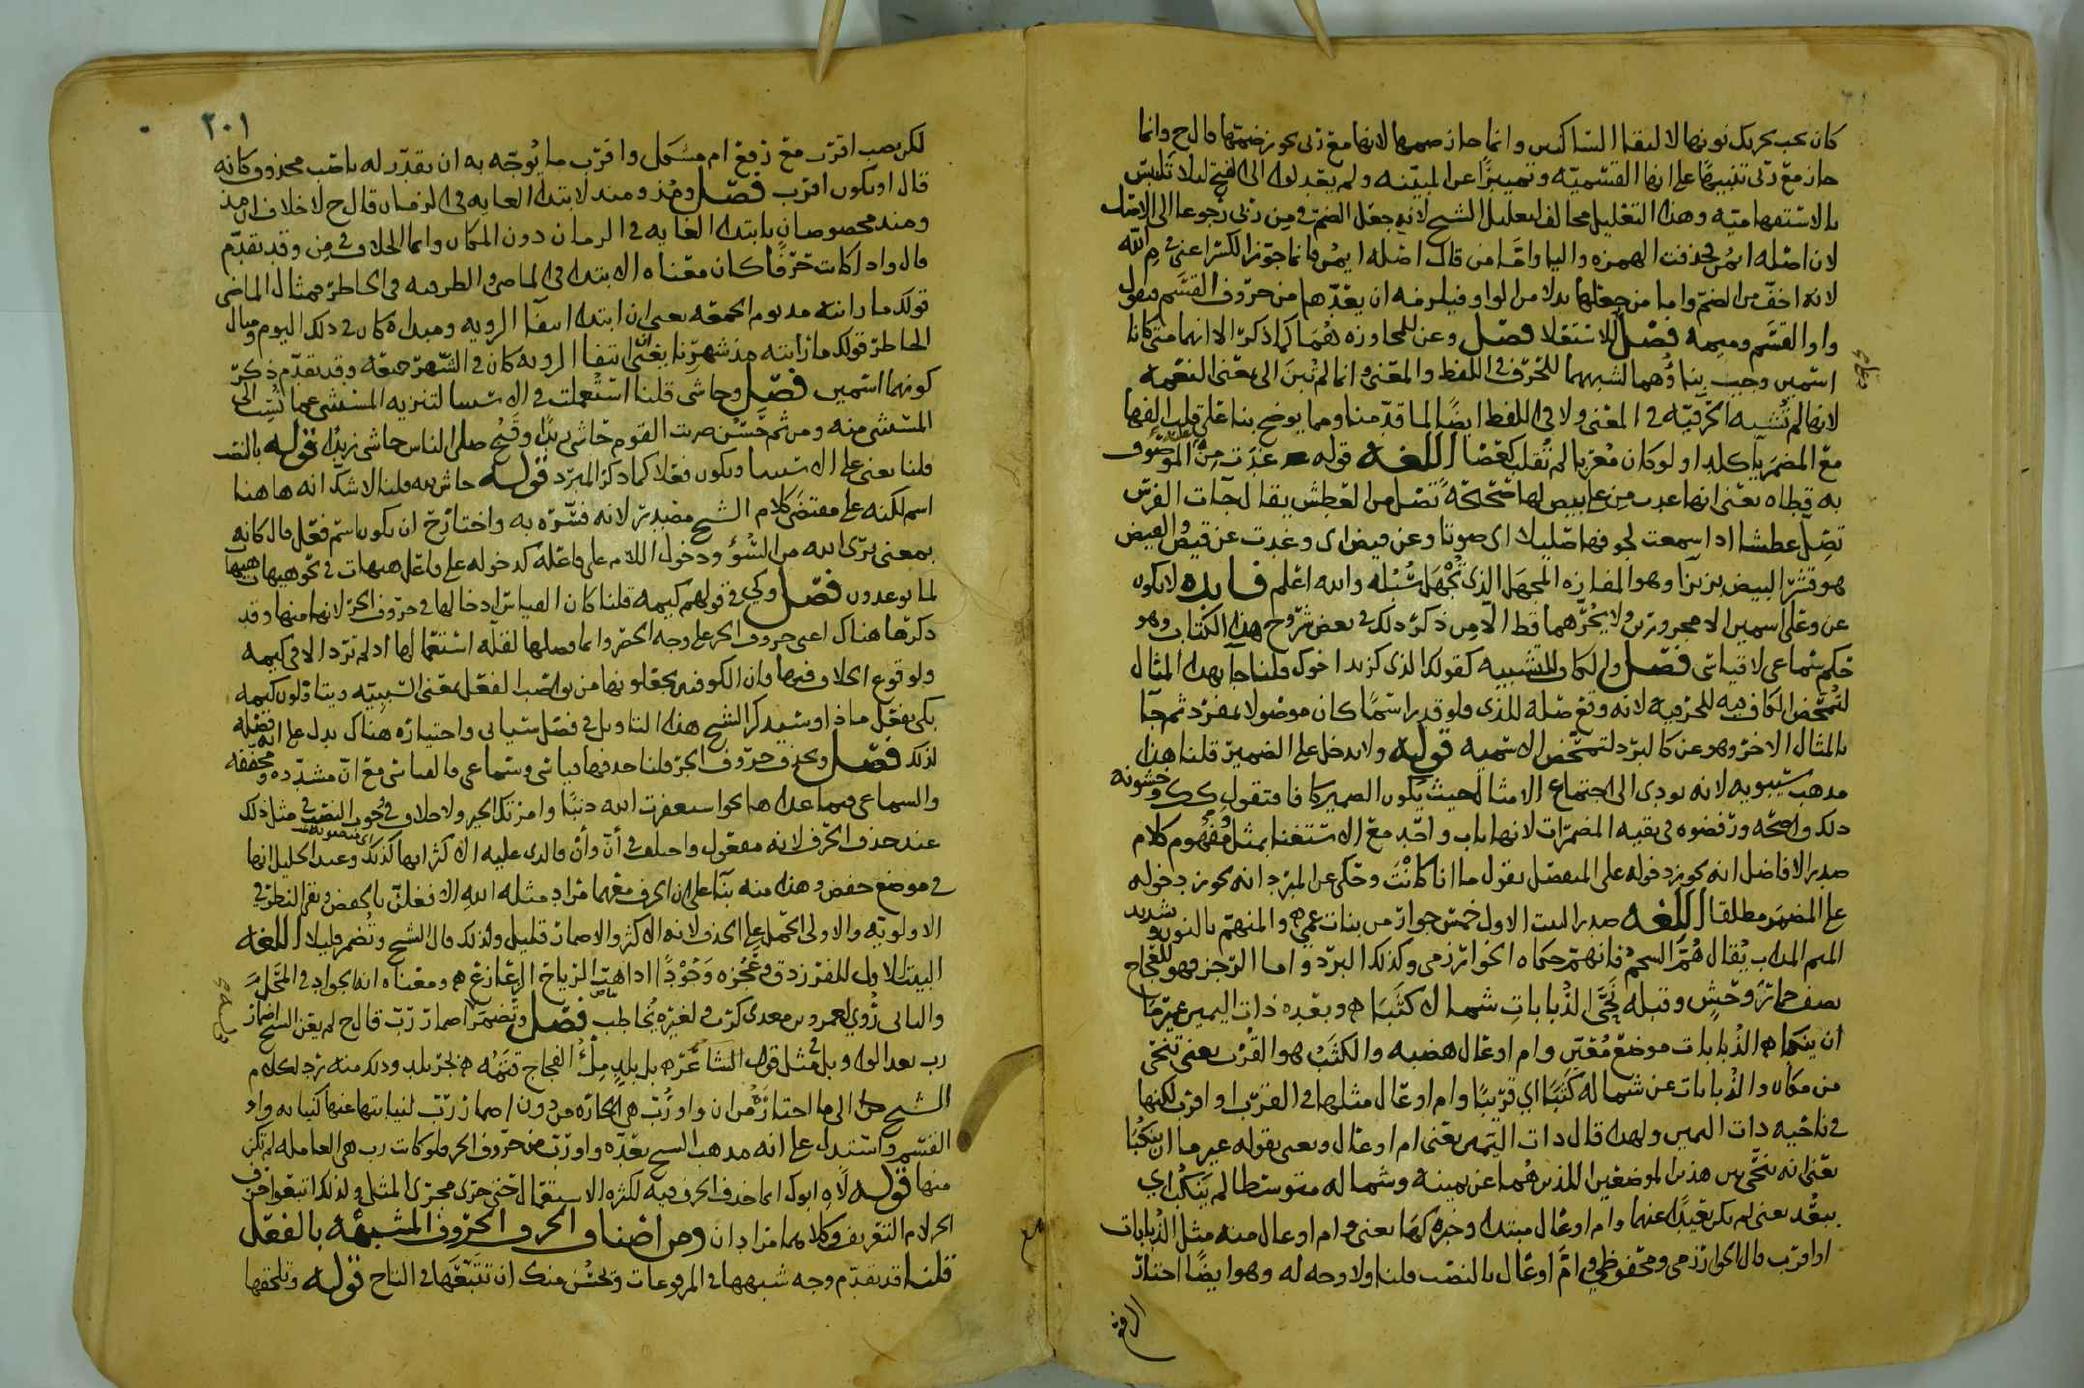 كان يجب تحريك نونها لالتقاء الساكنين وانما جاز ضمها لانها مع ربى يجوز ضمتها قال ح وانما
جاز مع ربى تنبيهًا على انها القسميّه وتمييزًا عن المبيّنه ولم يعدلوا الى الفتح ليلا تلتبس
بالاستفهاميّه وهذا التعليل مخالف لتعليل الشيخ لانه جعل الضمّ في مِن ربى رجوعا الى الاصل
لان اصله ايمُن فحذفت الهمزه واليا وامّا من قال اصله ايمُن فانما جوّز الكسر اعنى في مِ الله
لانه اخفّ من الضمّ واما من جعلها بدلا من الواو فيلزمه ان يعدّها من حروف القسَم فيقول
واو القسَم وميمه فصل للاستعلا فصل وعن للمجاوزه هُمَا كما ذكر الا انهما متى كانا
اسمين وجب بناؤهما لشبههما للحرف في اللفظ والمعنى وانما لم تُبنَ الى بمعنى النعمه
لانها لم تُشبه الحرفيّه في المعنى ولا في اللفظ ايضًا لما قدّمنا ومما يوضح بنا على قلب الفها
مع المضمر يآ كلدا ولو كان مُعرَبا لم تُقلب كعَصَا اللغه قوله غدَت مِن الموصوف
به قطاه يعنى انها غدت مِن على بيض لها صَحيحَةً تَصِل من العَطش يقال جآت الفرس
تصِلّ عطشا اذا سمعت لجوفها صَليلا اى صوتا وعن قيض اى وغدت عن قيض القيض
هو قشر البيض بزيزآ وهو المفازه المجهَل الذى تُجْهَل سُبُله والله اعلم فايده لا يكون
عن وعلى اسمين الا مجرورين ولا يَجُرّهما قط الا مِن ذكر ذلك في بعض شروح هذا الكتاب وهو
حكم سماعى لا قياسى فصل والكاف للتشبيه كقولك الذى كزيد اخوك قلنا جآ بهذا المثال
لتمحّض الكاف فيه للحرفيه لانه وقع صله للذى ولو قدر اسمًا كان موصولا بمفرد ثم جآ
بالمثال الاخر وهو عن كالبرد لتمحّض الاسميه قوله ولا يدخل على الضمير قلنا هذا
مذهب سيبويه لانه يودى الى اجتماع الامثال حيث يكون الضمير كافا فتقول كك وخشونه
ذلك واضحه ورفضوه في بقيه المضمرات لانها باب واحد مع الاستغنا بمثل ومفهوم كلام
صدر الافاضل انه يجوز دخوله على المنفصل يقول ما انا كانْت وحكى عن المبرد انه يجوز دخوله
على المضمر مطلقا اللغه صدر البيت الاول خمسُ جوارٍ من بنات عمّى ه والمنهم بالنون وتشديد
الميم المذاب يُقال هُمّ الشحمُ فانهمّ حكاه الخوارزمى وكذلك البرد واما الرّجز فهو للعجاج
يصف حمارَ وَحْشٍ وقبله نَحَّى الذُباباتِ شمالا كَثَبَا ه وبعده ذات اليمين غيرَ مَا
ان ينكَبا ه الذُبابات موضع مُعَيّن وام اوعال هضبه والكثَبُ هو القُرب يعنى تنحّى
من مكان والذُبابات عن شماله كَثَبًا اي قريبًا وام اوعال مثلها في القرب او اقرب لكنها
في ناحيه ذات اليمين ولهذا قال ذات اليمين يعنى ام اوعال ويعنى بقوله غير ما ان ينكُبَا
يعنى انه تنحّى بين هذين الموضعين اللذين هُما عن يمينه وشماله متوسّطا لم يَنكُب اي
يبعُد يعنى لم يكن بعيدًا عنهما وام اوعال مبتدا وخبره كهَا يعنى وام اوعال منه مثل الذُبابات
او اقرب قال الخوارزمى ومحفوظى وامَّ اوعال بالنصب قلنا ولا وجه له وهو ايضًا اختار
٢٠١
لكن نصب اقرب مع رفع ام مشكل واقرب ما يُوجّه به ان يقدّر له ناصب محذوف كانه
قال او يكون اقرب فصل ومُذ ومنذ لابتدا الغايه في الزمان قال ح لا خلاف ان مذ
ومنذ مخصوصان بابتدا الغايه في الزمان دون المكان وانما الخلاف في مِن وقد تقدّم
قال واذا كانت حرفًا كان معناه الابتدا في الماضى والظرفيه في الحاضر فمثال الماضى
قولك ما رايته مذ يوم الجمعه يعنى ان ابتدا انتفآ الرويه ومبداه كان في ذلك اليوم ومثال
الحاضر قولك ما رايته مذ شهرنا يعنى انّ انتفا الرويه كان في الشهر جميعه وقد تقدّم ذكر
كونهما اسمين فصل وحاشى قلنا استُعملت في الاستثنا لتنزيه المستثنى عما نُسِب الى
المستثنى منه ومن ثم حَسُن ضربت القوم حاشى زيدًا وقبُح صلى الناس حاشى زيدًا قوله بالنصب
قلنا يعنى على الاستثنا ويكون فعلا كما ذكر المبرد قوله حاش لله قلنا لا شك انه هاهنا
اسم لكنه على مقتضَى كلام الشيخ مصدر لانه فسّره به واختار ح ان يكون اسم فعل قال كانه
بمعنى برى الله من السُوء ودخول اللام على فاعله كدخوله على فاعل هيهات في نحو هيهات هيهات
لما توعدون فصل وكى في قولهم كيمه قلنا كان القياس ادخالها في حروف الجر لانها منها وقد
ذكرها هناك اعنى حروف الجر على وجه الحصر وانما فصلها لقلّه استعمالها اذ لم ترد الا في كيمه
ولوقوع الخلاف فيها فان الكوفيين يجعلونها من نواصب الفعل بمعنى السببيّه ويتاولون كيمه
بكى يفعل ماذا وسيذكر الشيخ هذا التاويل في فصل سياتى واختياره هناك يدل على انه فصله
لذلك فصل وتحذف حروف الجر قلنا حذفها قياسى وسماعى فالقياسى مع انّ مشدّده ومخففه
والسماعى فيما عداها نحو استغفرت الله ذنبًا وامرتك الخير ولا خلاف في وجوب النصب في مثل ذلك
عند حذف الحرف لانه مفعول واختلف في أنّ وأن فالذى عليه الاكثر انها كذلك وعند الخليل انها
في موضع خفض وهذا منه بنآ على ان الحرف معهما مُرَاد مثله اللهِ لافعلنّ بالخفض وبقى النظر في
الاولويّه والاولى الحمل على الحذف لانه الاكثر والاضمار قليل ولذلك قال الشيخ وتُضمر قليلا اللغه
البيت الاول للفرزدق وعَجُزه وَجُوْدًا اذا هبّ الرياح الزعازع ه ومعناه انه الجواد في المَحْل مَ
والثانى رُوي لعمرو بن معدى كرب ولغيره يُخاطب فصل وتُضمَر اضمار رُبّ قال ح لم يعن الشيخ اضمار
رب بعد الواو وبل في مثل قول الشاعر ه بل بلدٍ مِلْءُ الفجاج قتمُه ه فجر بلد وذلك منه ترد لكلام
الشيخ حتى الى ما اختارَه من ان واو رُبّ هى الجارّه من دون اضمار رُبّ لنيابتها عنها كنيابه واو
القسم واستدل على انه مذهب الشيخ بعدّه واو رُبّ من حروف الجر فلو كانت رب هى العامله لم تكن
منها قوله لاهِ ابوك انما حذف الحرف فيه لكثره الاستعمال حتى جرى مجرى المثل ولذلك اتبعوا حرف
الجر لام التعريف وكلاهما مرادان ومن اصناف الحرف الحروف المشبهه بالفعل
قلنا قد تقدّم وجه شبهها في المرفوعات ويحسُن منك ان تتتبّعَها في التاج قوله وتلحقها